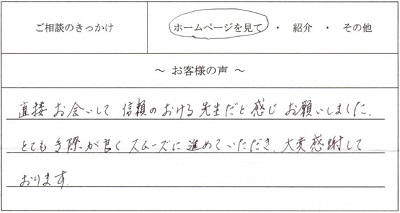 ご相談のきっかけ
ホームページを見て ・ 紹介 ・ その他
～ お客様の声 ～
直接お会いして信頼のおける先生だと感じお願いしました。
とても手際が良くスムーズに進めていただき、大変感謝して
おります